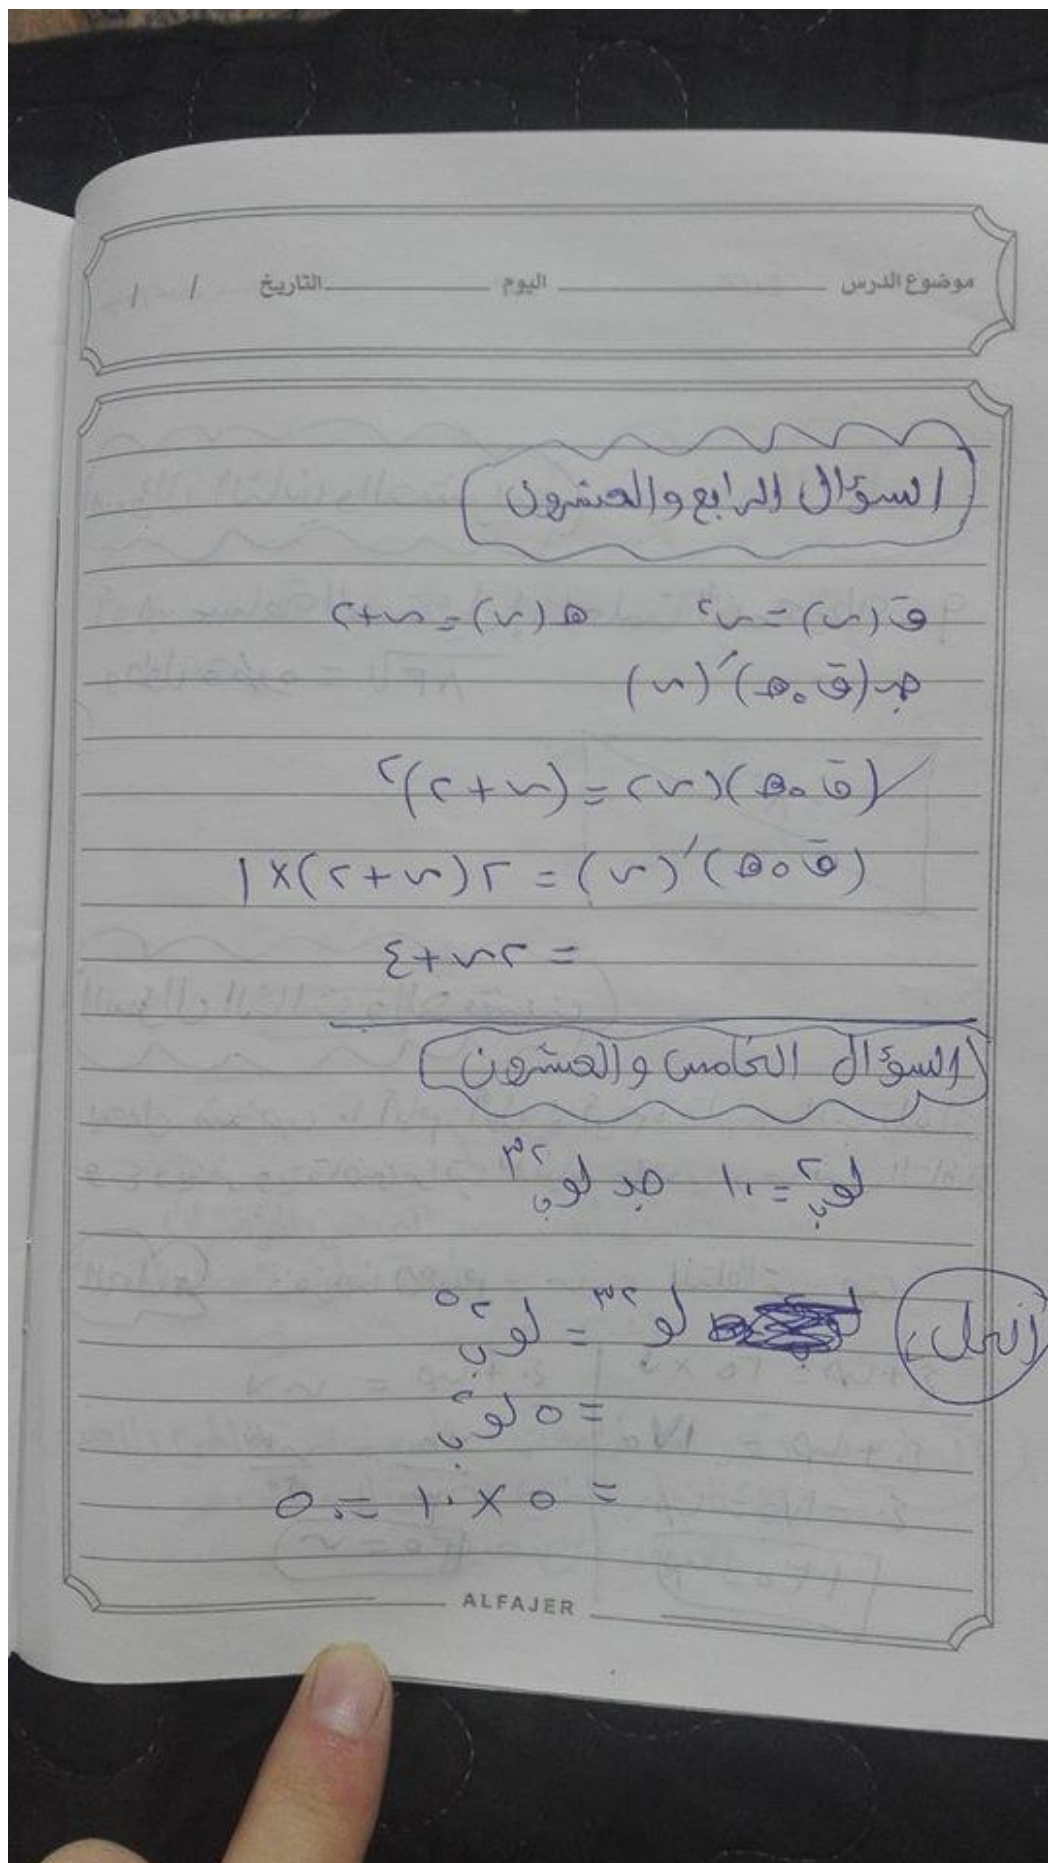 موضوع الدرس اليوم التاريخ / /
السؤال الرابع والعشرون
ق(س) = س² هـ(س) = س+٢
جد (ق∘هـ)′(س)
(ق∘هـ)(س) = (س+٢)²
(ق∘هـ)′(س) = ٢(س+٢)×١
= ٢س+٤
السؤال الخامس والعشرون
لو ب ٢ = ١٠ جد لو ب ٣٢
الحل: لو ب ٣٢ = لو ب ٢⁵
= ٥ لو ب ٢
= ٥ × ١٠ = ٥٠
ALFAJER